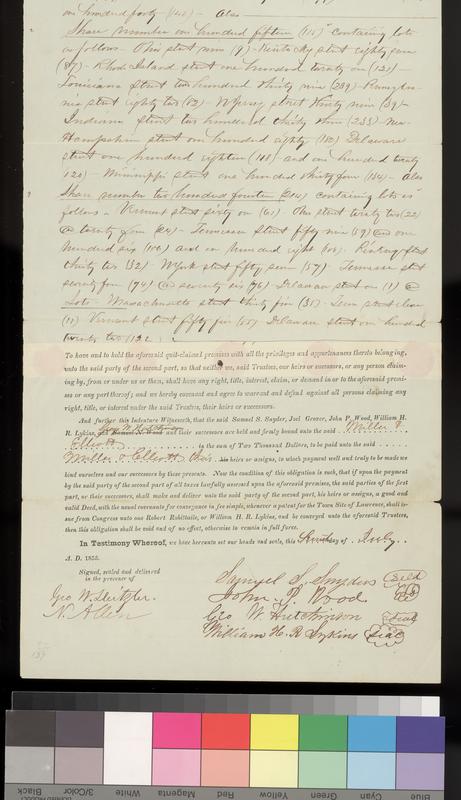 one hundred forty (140) - Also
Share number one hundred fifteen (115) containing lots
as follows - Ohio street nine (9) - Kentucky street eighty seven
(87) - Rhode Island street one hundred twenty one (121) -
Louisiana Street two hundred thirty nine (239) - Pennsylva-
nia street eighty two (82) - N Jersey street thirty nine (39) -
Indiana street two hundred thirty three (233) - New
Hampshire street one hundred eighty (180) Delaware
street one hundred eighteen (118) and one hundred twenty
120) - Mississippi street one hundred thirty four (134) - Also
Share number two hundred fourteen (214) containing lots as
follows - Vermont street sixty one (61) Ohio street twenty two (22)
twenty four (24) - Tennessee street fifty nine (59)
hundred six (106) and one hundred eight 108) - Kentucky street
thirty two (32) N York street fifty seven (57) - Tennessee street
seventy four (74) seventy six (76) Delaware street one (1)
Lots - Massachusetts street thirty five (35) - street eleven
(11) Vermont street fifty five (55) Delaware street one hundred
twenty two (122
To have and to hold the aforesaid quit-claimed premises with all the privileges and appurtenances thereto belonging,
unto the said party of the second part, so that neither we, said Trustees, our heirs or successors, or any person claim-
ing by, from or under us or them, shall have any right, title, interest, claim, or demand in or to the aforesaid premi-
ses or any part thereof; and we hereby covenant and agree to warrant and defend against all persons claiming any
right, title, or interest under the said Trustees, their heirs or successors.
And further this indenture Witnesseth, that the said Samuel S. Snyder, Joel Grover, John P. Wood, William H.
Geo W Hutchinson
R. Lykins, and their successors are held and firmly bound unto the said Miller &
Elliott in the sum of Two Thousand Dollars, to be paid unto the said
Miller & Elliott their his heirs or assigns, to which payment well and truly to be made we
bind ourselves and our successors by these presents. Now the condition of this obligation is such, that if upon the payment
by the said party of the second part of all taxes lawfully assessed upon the aforesaid premises, the said parties of the first
part, or their successors, shall make and deliver unto the said party of the second part, his heirs or assigns, a good and
valid Deed, with the usual covenants for conveyance in fee simple, whenever a patent for the Town Site of Lawrence, shall is-
sue from Congress unto our Robert Robitaille, or William H. R. Lykins, and be conveyed unto the aforesaid Trustees,
then this obligation shall be void and of no effect, otherwise to remain in full force.
In Testimony Whereof, we have hereunto set our hands and seals, this day of July
A. D. 1855.
Signed, sealed and delivered
in the presence of
Geo W. Deitzler.
N. Allen
Samuel S. Snyder Seal
John P. Wood
Geo W. Hutchinson Seal
William H. R Lykins Seal
Black
3/Color
White
Magenta
Red
Yellow
Green
Cyan
Blue